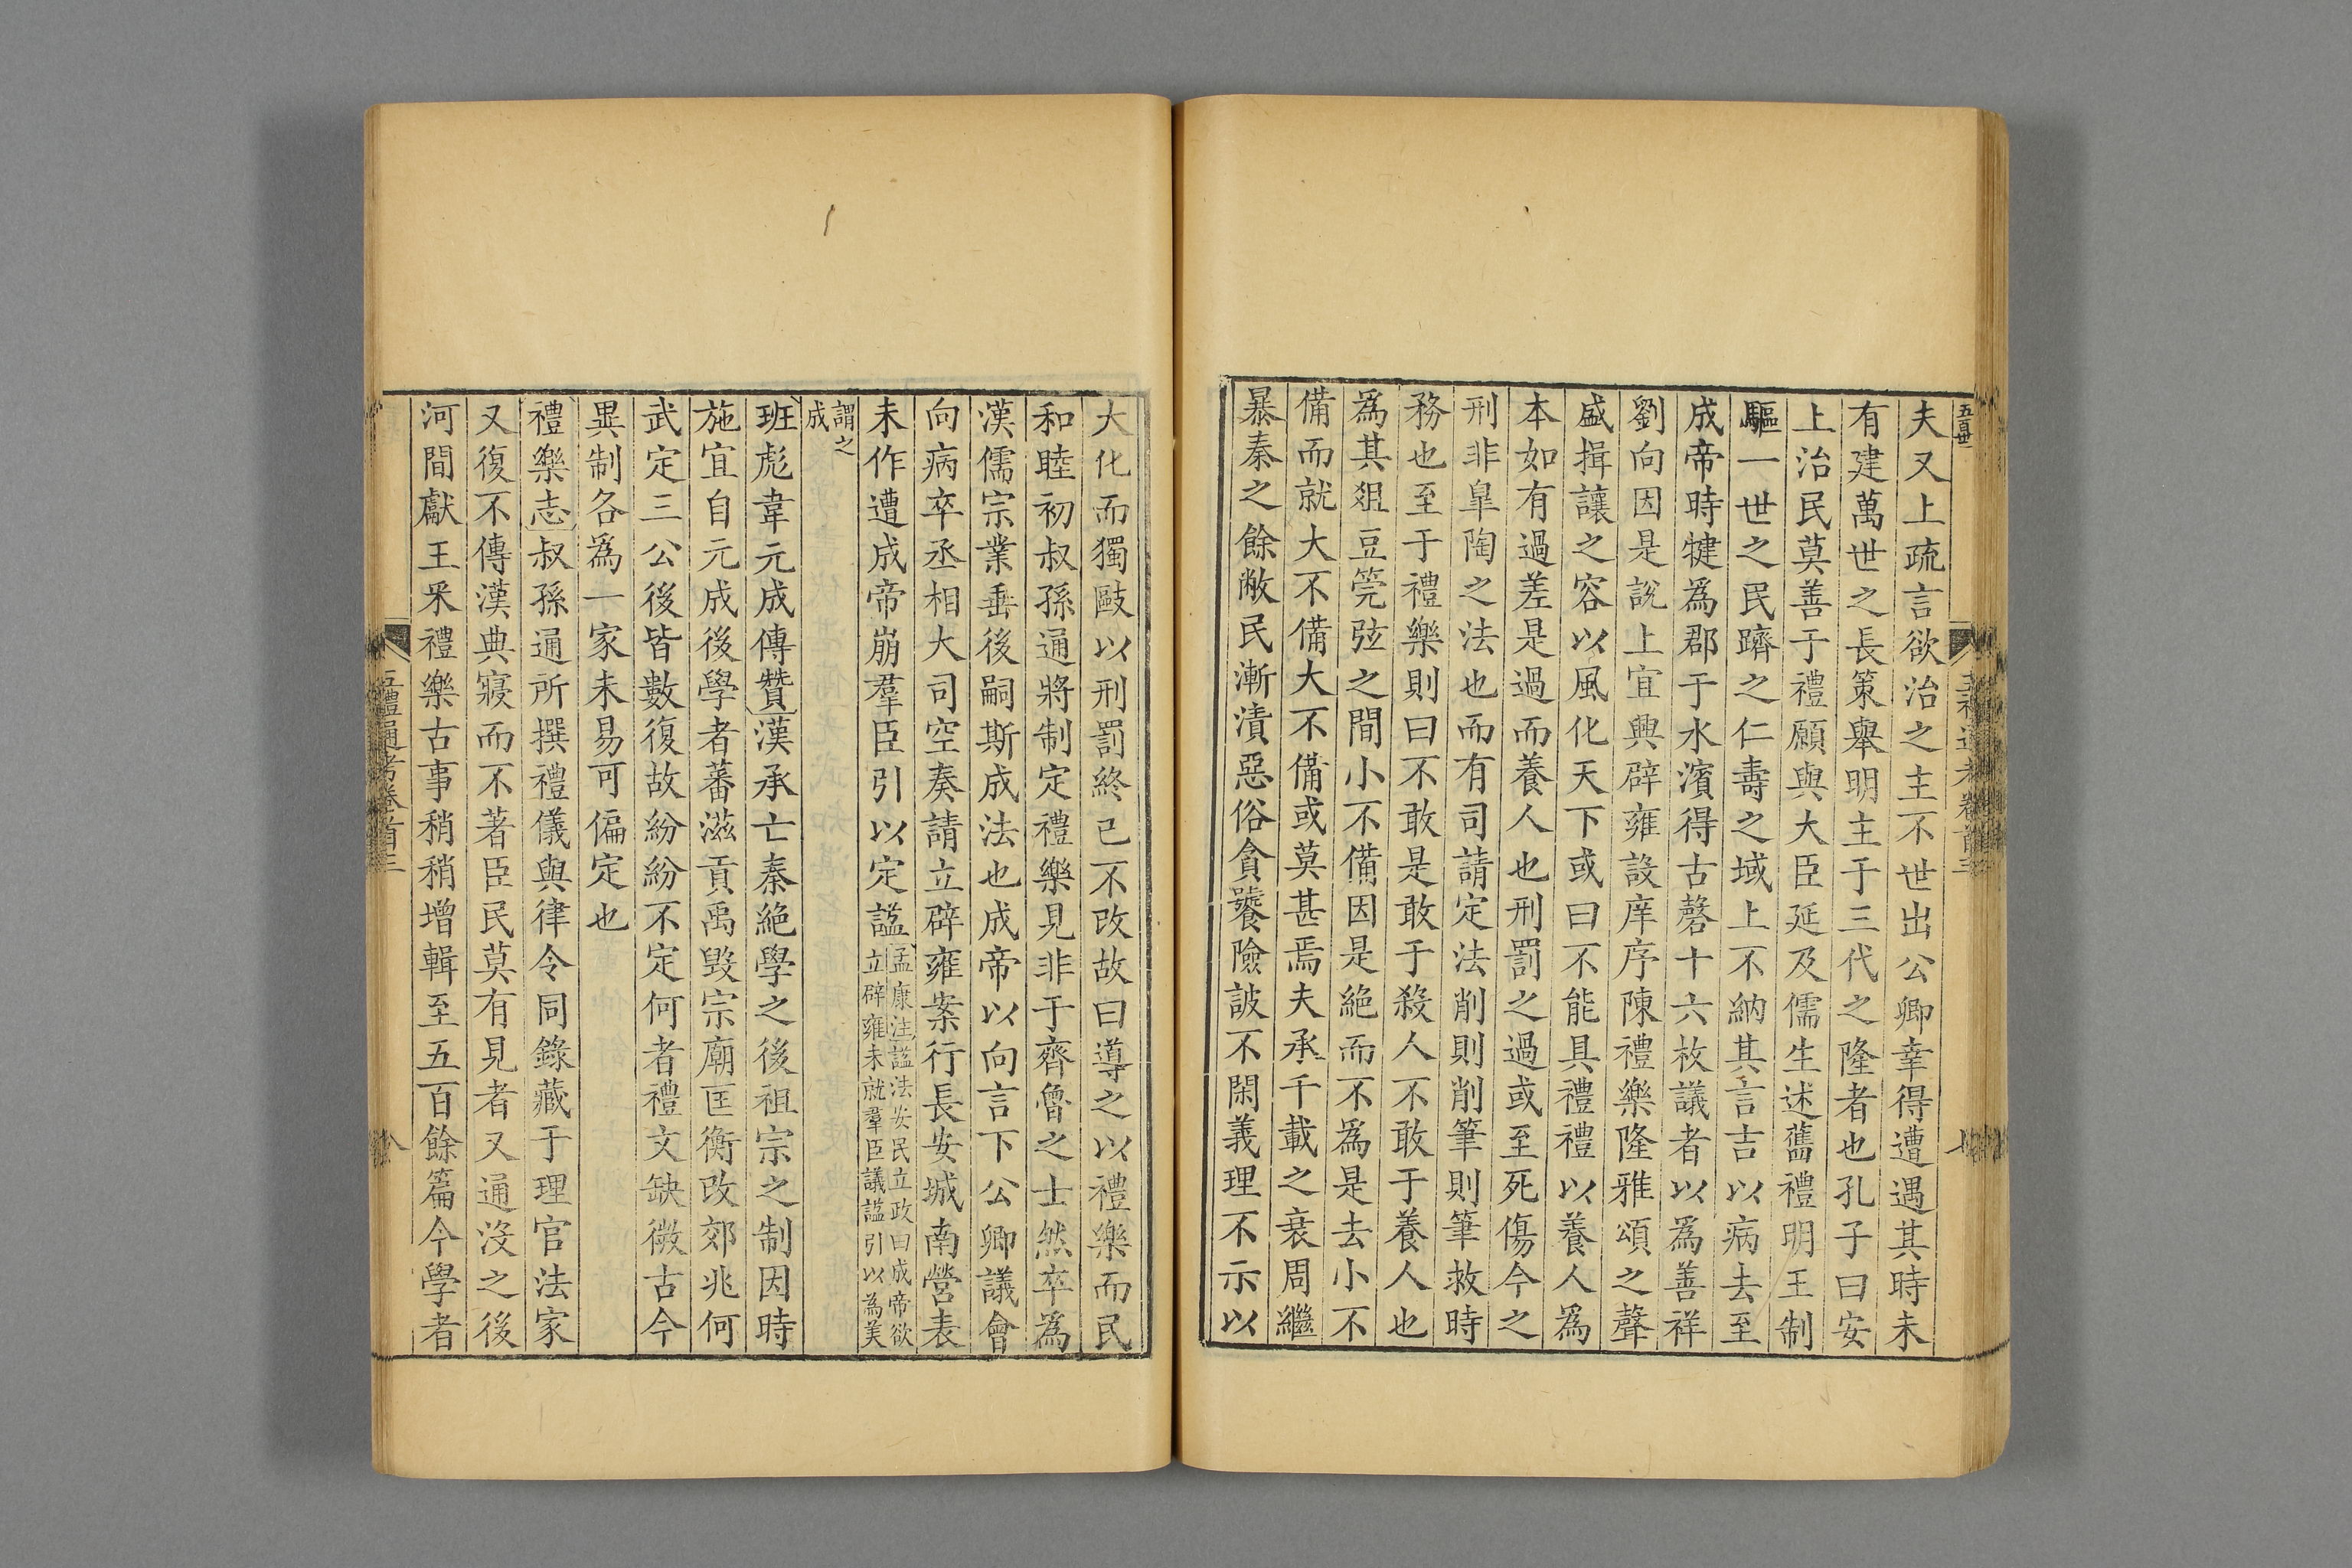 五百卅
夫又上疏言欲治之主不世出公卿幸得遭遇其時未
有建萬世之長策舉明主于三代之隆者也孔子曰安
上治民莫善于禮願與大臣延及儒生述舊禮明王制
驅一世之民躋之仁壽之域上不納其言吉以病去至
成帝時犍爲郡于水濱得古磬十六枚議者以爲善祥
劉向因是說上宜興辟雍設庠序陳禮樂隆雅頌之聲
盛揖讓之容以風化天下或曰不能具禮禮以養人爲
本如有過差是過而養人也刑罰之過或至死傷今之
刑非皐陶之法也而有司請定法削則削筆則筆救時
務也至于禮樂則曰不敢是敢于殺人不敢于養人也
爲其俎豆筦弦之間小不備因是絕而不爲是去小不
備而就大不備大不備或莫甚焉夫承千載之衰周繼
暴秦之餘敝民漸漬惡俗貪饕險詖不閑義理不示以
大化而獨敺以刑罰終已不改故曰導之以禮樂而民
和睦初叔孫通將制定禮樂見非于齊魯之士然卒爲
漢儒宗業垂後嗣斯成法也成帝以向言下公卿議會
向病卒丞相大司空奏請立辟雍案行長安城南營表
未作遭成帝崩羣臣引以定諡孟康注諡法安民立政曰成帝欲
立辟雍未就羣臣議諡引以為美
謂之
成
班彪韋元成傳贊漢承亡秦絕學之後祖宗之制因時
施宜自元成後學者蕃滋貢禹毀宗廟匡衡改郊兆何
武定三公後皆數復故紛紛不定何者禮文缺微古今
異制各爲一家未易可偏定也
禮樂志叔孫通所撰禮儀與律令同錄藏于理官法家
又復不傳漢典寢而不著臣民莫有見者又通沒之後
河間獻王采禮樂古事稍稍增輯至五百餘篇今學者
五禮通考卷首三
八